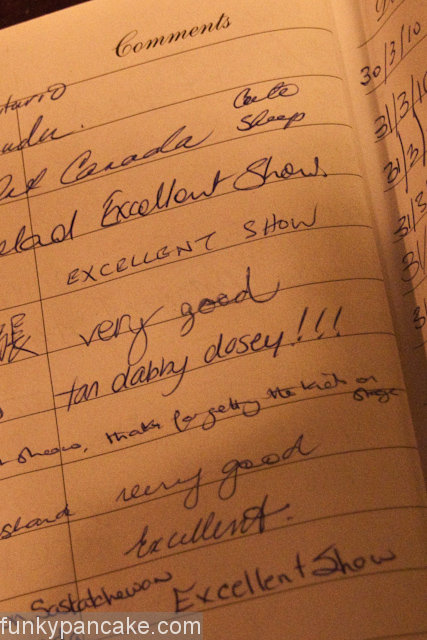 Comments
30/3/10
31/3/10
Cute
Sheep
Canada
31/3/
Excellent Show
31/3
EXCELLENT SHOW
31/
very good
3
tan dabby dosey!!!
show, thanks for getting the kids on
stage
very good
Excellent.
Saskatchewan
Excellent Show
funkypancake.com